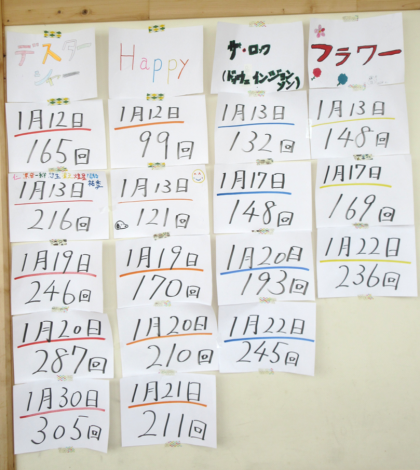 デスター
シャー
1月12日
165回
1月13日
216回
1月19日
246回
1月20日
287回
1月30日
305回
Happy
1月12日
99回
1月13日
121回
1月19日
170回
1月20日
210回
1月21日
211回
ザ・ロック
1月13日
132回
1月17日
148回
1月20日
193回
1月22日
245回
フラワー
1月13日
148回
1月17日
169回
1月22日
236回